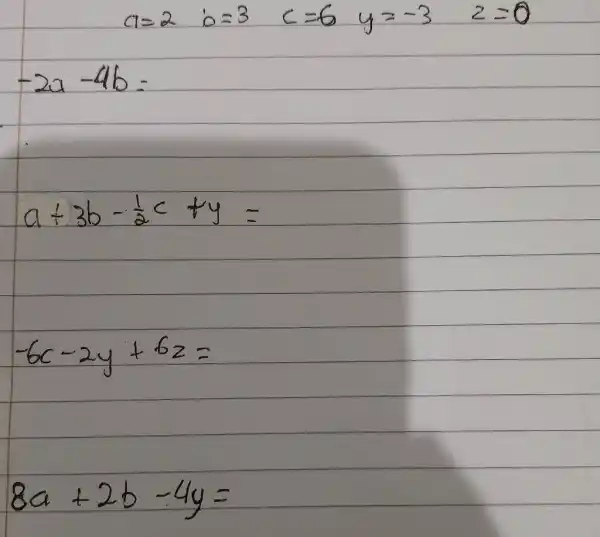 a=2 b=3 c=6 y=-3 z=0
-2a -4b =
a + 3b - 1/2 c + y =
-6c - 2y + 6z =
8a + 2b - 4y =